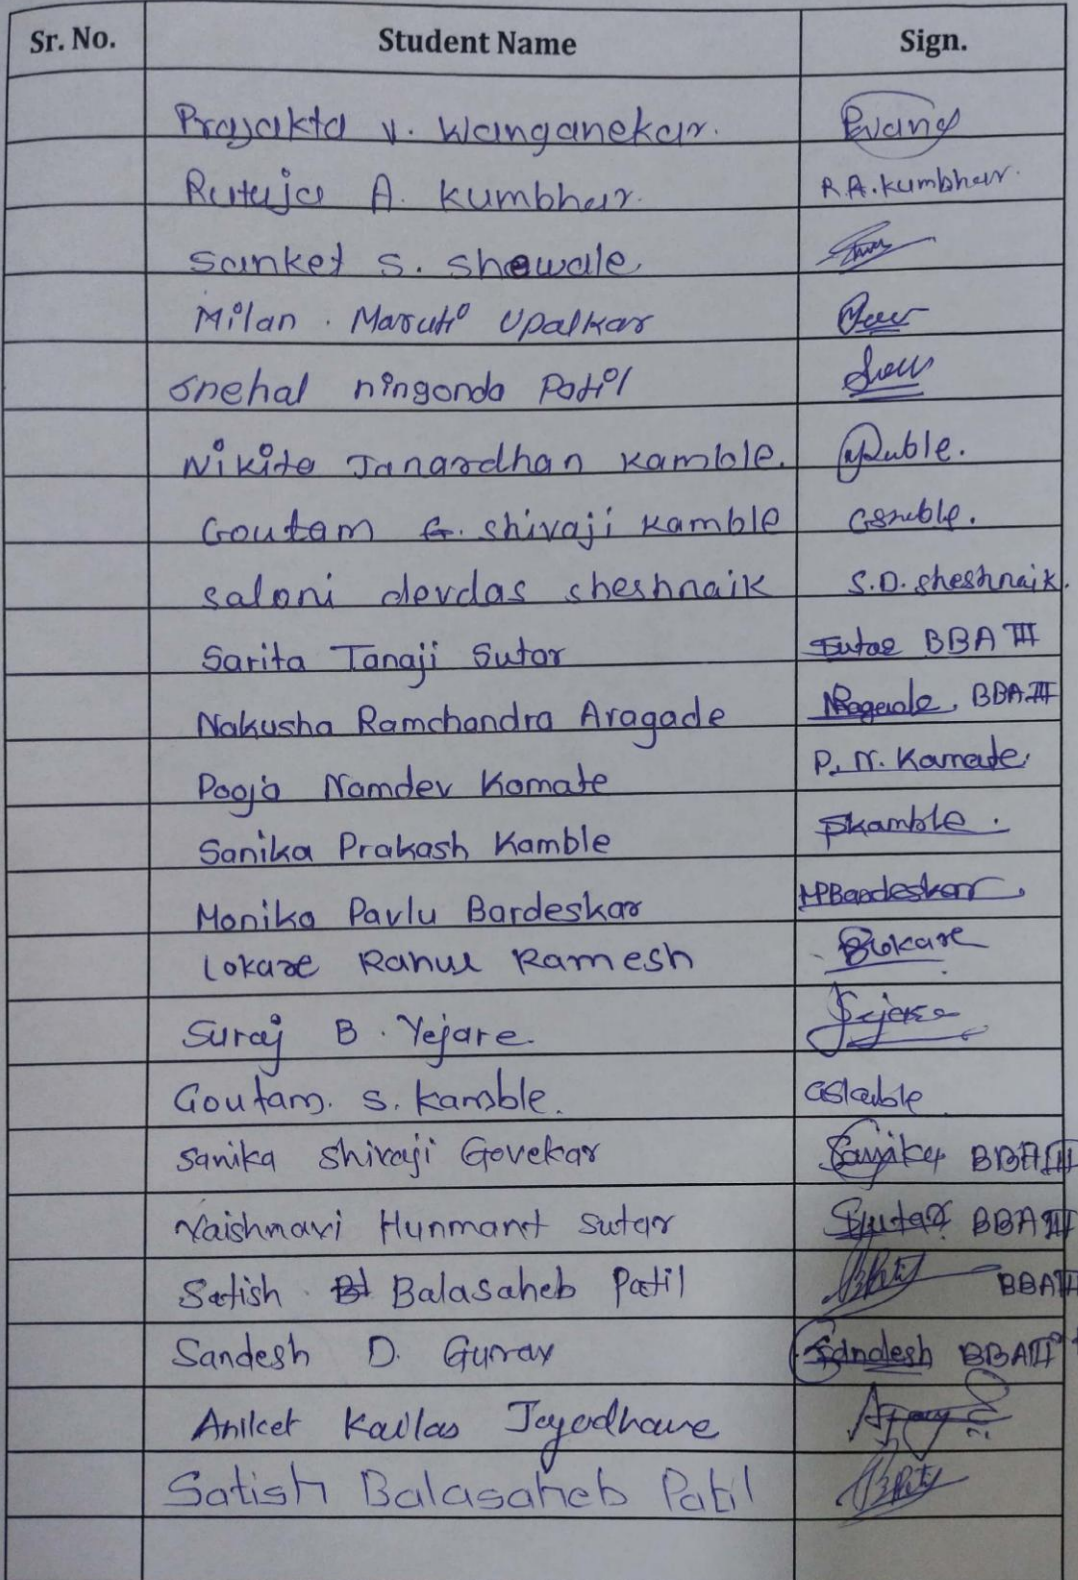 Sr. No. Student Name Sign.
Prajakta V. Wanganekar.
Rutuja A. Kumbhar. R.A. Kumbhar.
Sanket S. Shewale
Milan . Maruti Upalkar
Snehal ningonda Patil
Nikita Janardhan Kamble.
Goutam G. Shivaji Kamble
Saloni devdas sheshnaik S.D. Sheshnaik.
Sarita Tanaji Sutar Sutar BBA III
Nakusha Ramchandra Aragade BBA III
Pooja Namdev Kamate P. N. Kamate.
Sanika Prakash Kamble SKamble.
Monika Pavlu Bardeskar MPBardeskar
Lokare Rahul Ramesh
Suraj B. Yejare.
Goutam. S. Kamble.
Sanika Shivaji Govekar BBA III
Vaishnavi Hunmant Sutar BBA III
Satish Balasaheb Patil BBA
Sandesh D. Gurav Sandesh BBA III
Aniket Kailas Jayadhave
Satish Balasaheb Patil